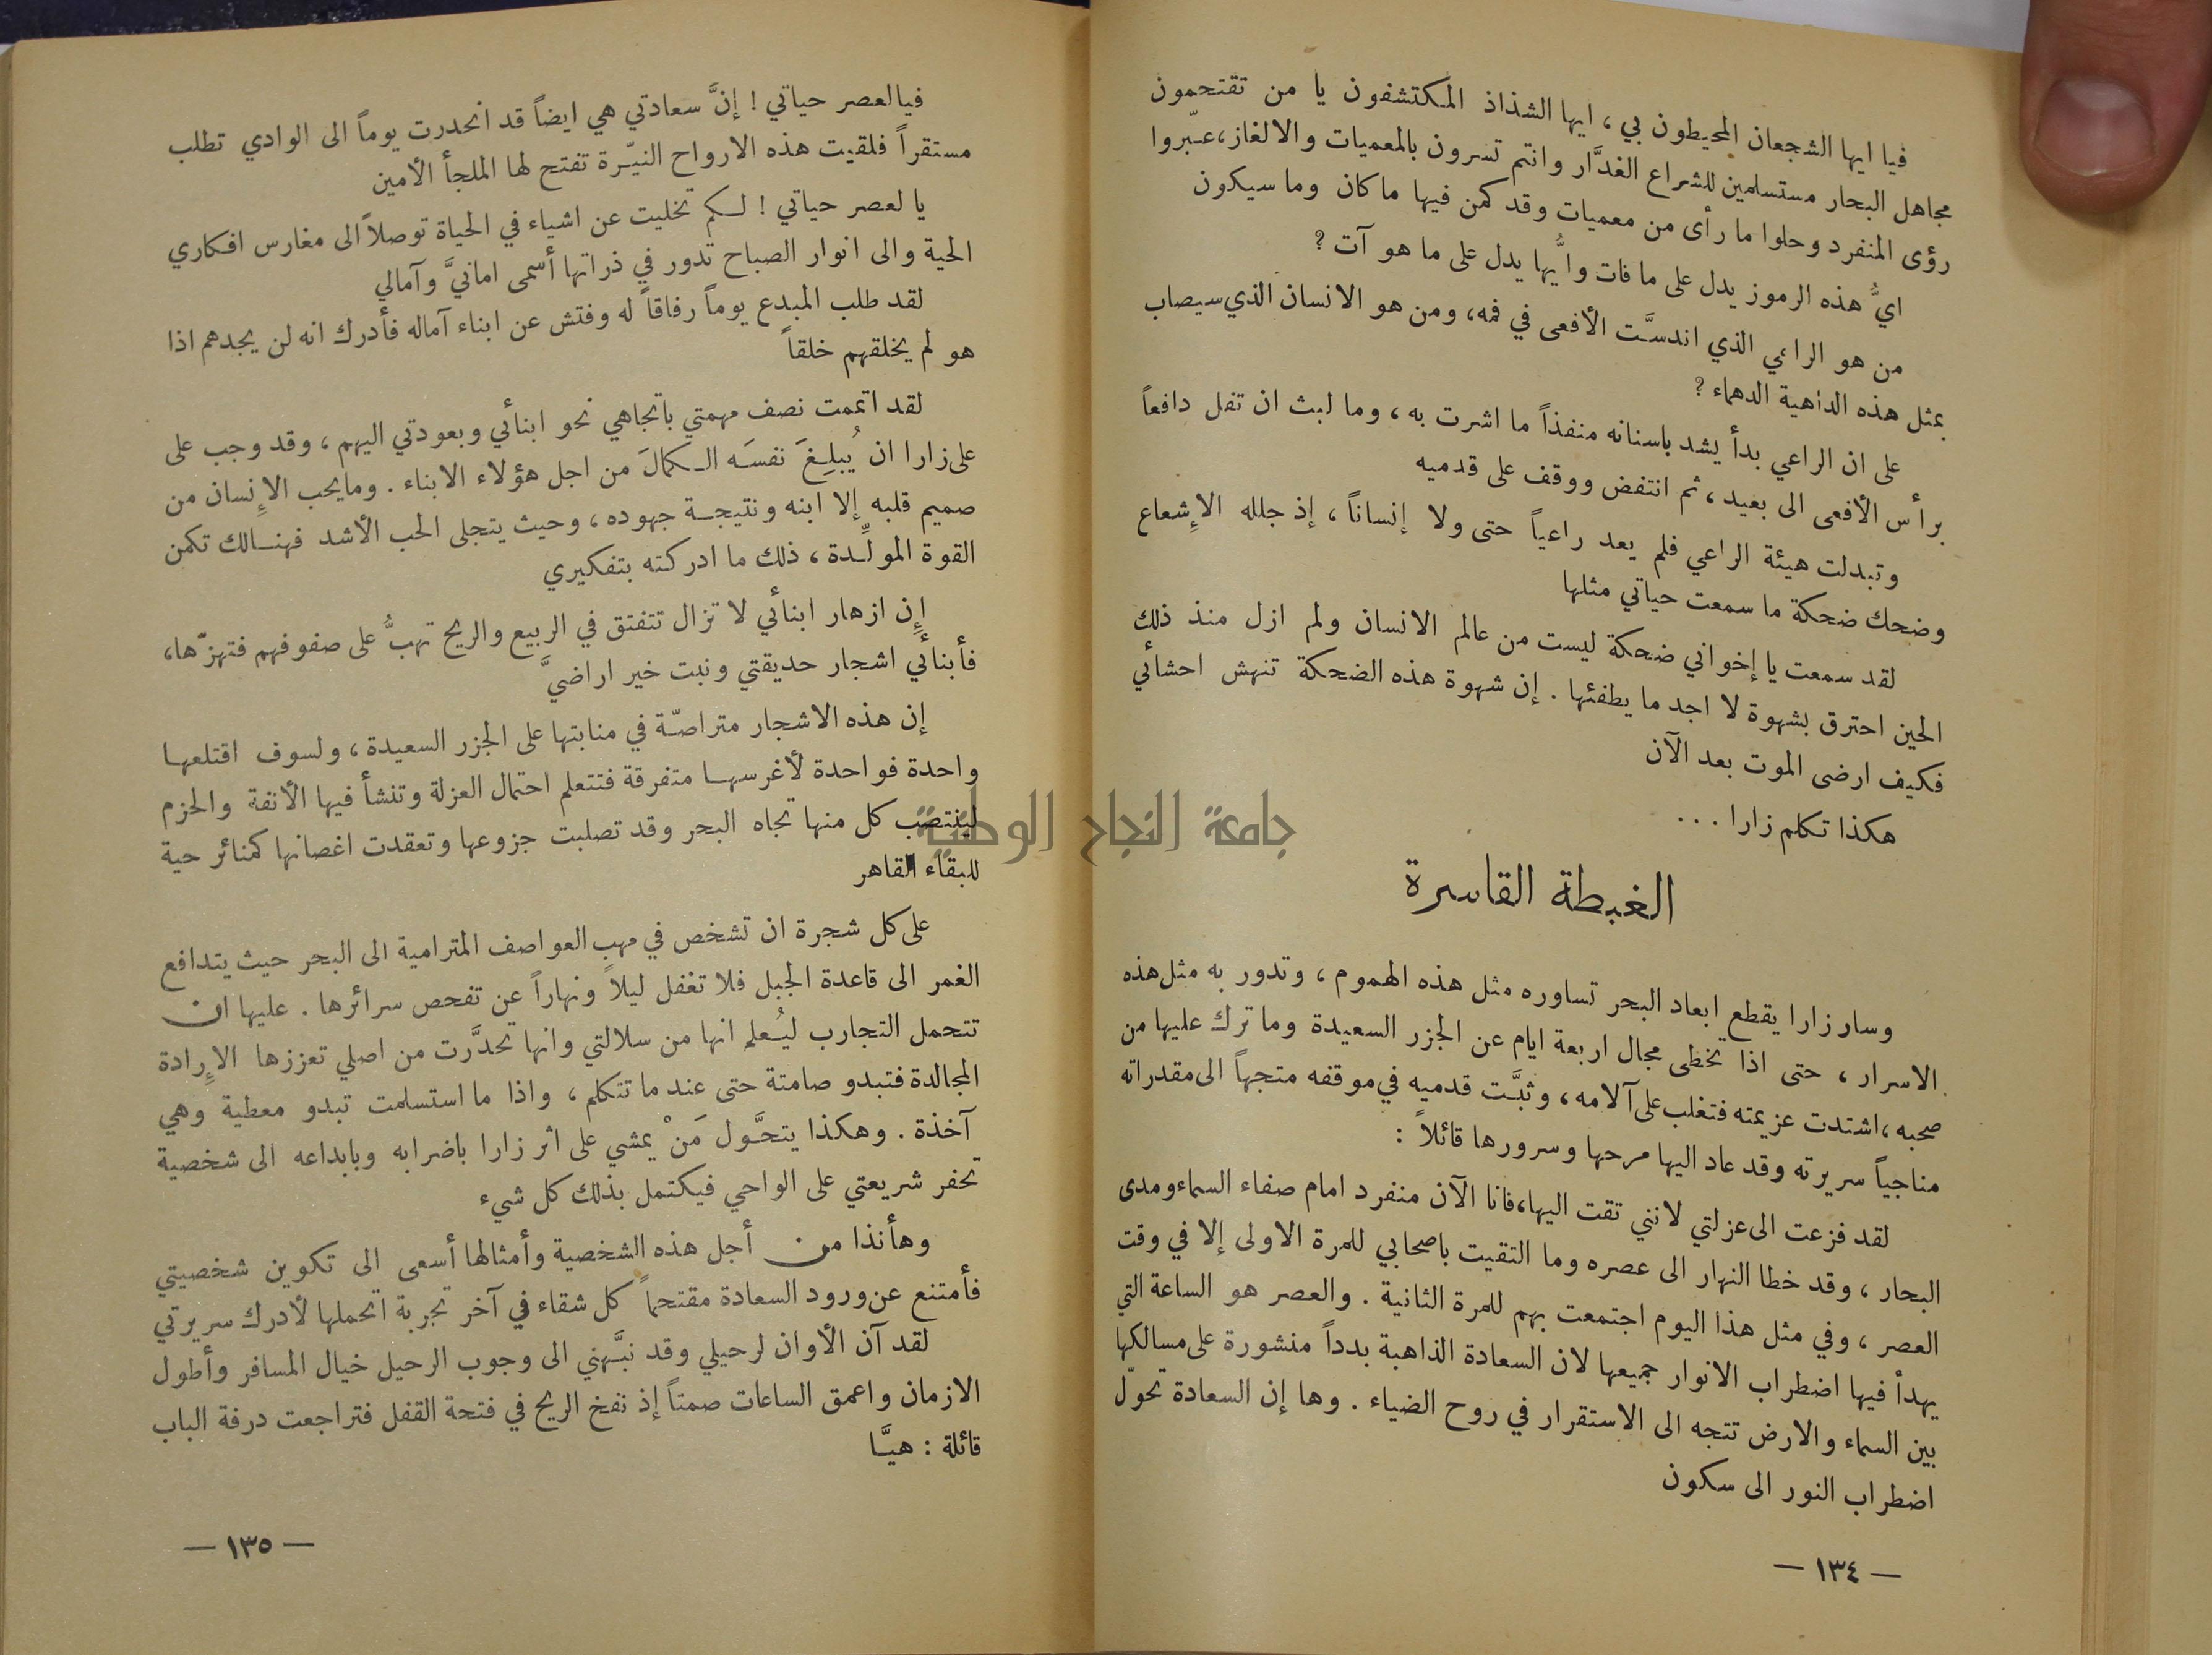 فيا ايها الشجعان المحيطون بي ، ايها الشذاذ المكتشفون يا من تقتحمون
مجاهل البحار مستسلمين للشراع الغدَّار وانتم تسرون بالمعميات والالغاز، عبّروا
رؤى المنفرد وحلوا ما رأى من معميات وقد كمن فيها ماكان وما سيكون
ايُّ هذه الرموز يدل على ما فات وايُّها يدل على ما هو آت ؟
من هو الراعي الذي اندسَّت الأفعى في فمه، ومن هو الانسان الذي سيصاب
بمثل هذه الداهية الدهماء ؟
على ان الراعي بدأ يشد باسنانه منفذاً ما اشرت به ، وما لبث ان تفل دافعاً
برأس الأفعى الى بعيد ، ثم انتفض ووقف على قدميه
وتبدلت هيئة الراعي فلم يعد راعياً حتى ولا إنساناً ، إذ جلله الإشعاع
وضحك ضحكة ما سمعت حياتي مثلها
لقد سمعت يا إخواني ضحكة ليست من عالم الانسان ولم ازل منذ ذلك
الحين احترق بشهوة لا اجد ما يطفئها . إن شهوة هذه الضحكة تنهش احشائي
فكيف ارضى الموت بعد الآن
هكذا تكلم زارا ...
الغبطة القاسرة
وسار زارا يقطع ابعاد البحر تساوره مثل هذه الهموم ، وتدور به مثل هذه
الاسرار ، حتى اذا تخطى مجال اربعة ايام عن الجزر السعيدة وما ترك عليها من
صحبه ، اشتدت عزيمته فتغلب على آلامه ، وثبَّت قدميه في موقفه متجهاً الى مقدراته
مناجياً سريرته وقد عاد اليها مرحها وسرورها قائلاً :
لقد فزعت الى عزلتي لانني تقت اليها، فانا الآن منفرد امام صفاء السماء ومدى
البحار ، وقد خطا النهار الى عصره وما التقيت باصحابي للمرة الاولى إلا في وقت
العصر ، وفي مثل هذا اليوم اجتمعت بهم للمرة الثانية . والعصر هو الساعة التي
يهدأ فيها اضطراب الانوار جميعها لان السعادة الذاهبة بدداً منشورة على مسالكها
بين السماء والارض تتجه الى الاستقرار في روح الضياء . وها إن السعادة تحوّل
اضطراب النور الى سكون
— ١٣٤ —
فيا لعصر حياتي ! إنَّ سعادتي هي ايضاً قد انحدرت يوماً الى الوادي تطلب
مستقراً فلقيت هذه الارواح النيّرة تفتح لها الملجأ الأمين
يا لعصر حياتي ! لكم تخليت عن اشياء في الحياة توصلاً الى مغارس افكاري
الحية والى انوار الصباح تدور في ذراتها أسمى امانيَّ وآمالي
لقد طلب المبدع يوماً رفاقاً له وفتش عن ابناء آماله فأدرك انه لن يجدهم اذا
هو لم يخلقهم خلقاً
لقد اتممت نصف مهمتي باتجاهي نحو ابنائي وبعودتي اليهم ، وقد وجب على
على زارا ان يُبلِغَ نفسَه الكمالَ من اجل هؤلاء الابناء . وما يحب الإنسان من
صميم قلبه إلا ابنه ونتيجة جهوده ، وحيث يتجلى الحب الأشد فهنالك تكمن
القوة المولِّدة ، ذلك ما ادركته بتفكيري
إن ازهار ابنائي لا تزال تتفتق في الربيع والريح تهبُّ على صفوفهم فتهزّها،
فأبنائي اشجار حديقتي ونبت خير اراضيَّ
إن هذه الاشجار متراصّة في منابتها على الجزر السعيدة ، ولسوف اقتلعها
واحدة فواحدة لأغرسها متفرقة فتتعلم احتمال العزلة وتنشأ فيها الأنفة والحزم
لينتصب كل منها تجاه البحر وقد تصلبت جزوعها وتعقدت اغصانها كمنائر حية
للبقاء القاهر
على كل شجرة ان تشخص في مهب العواصف المترامية الى البحر حيث يتدافع
الغمر الى قاعدة الجبل فلا تغفل ليلاً ونهاراً عن تفحص سرائرها . عليها ان
تتحمل التجارب ليُعلم انها من سلالتي وانها تحدَّرت من اصلي تعززها الإرادة
المجالدة فتبدو صامتة حتى عند ما تتكلم ، واذا ما استسلمت تبدو معطية وهي
آخذة . وهكذا يتحَّول مَنْ يمشي على اثر زارا باضرابه وبابداعه الى شخصية
تحفر شريعتي على الواحي فيكتمل بذلك كل شيء
وهأنذا من أجل هذه الشخصية وأمثالها أسعى الى تكوين شخصيتي
فأمتنع عن ورود السعادة مقتحماً كل شقاء في آخر تجربة اتحملها لأدرك سريرتي
لقد آن الأوان لرحيلي وقد نبَّهني الى وجوب الرحيل خيال المسافر وأطول
الازمان واعمق الساعات صمتاً إذ نفخ الريح في فتحة القفل فتراجعت درفة الباب
قائلة : هيَّا
— ١٣٥ —
جامعة النجاح الوطنية